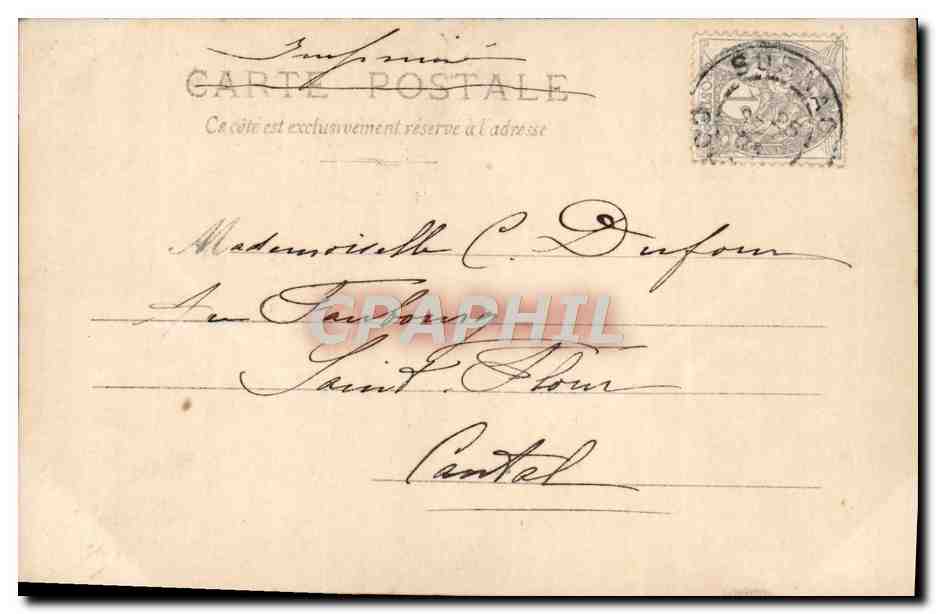 Imprimé
CARTE POSTALE
Ce côté est exclusivement réservé à l'adresse
Mademoiselle C. Dufour
Au Faubourg
CPAPHIL
Saint-Flour
Cantal